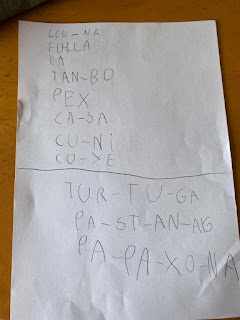 LLU-NA
FULLA
CA
TAN-BO
PEX
CA-SA
CU-Ni
CO-XE
TUR-TU-GA
PA-ST-AN-AG
PA-PA-XO-NA